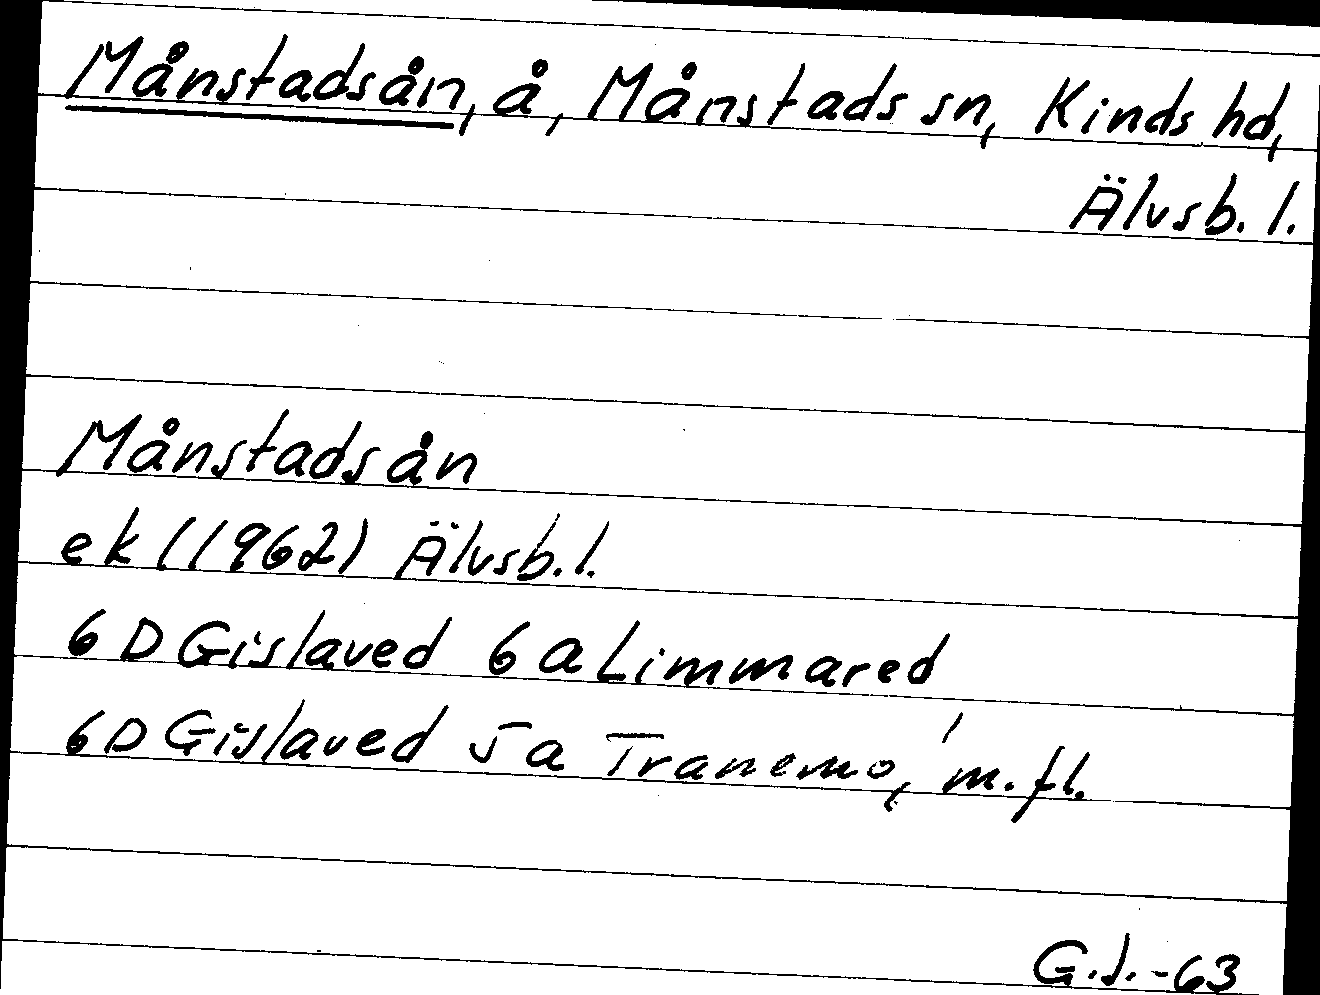 Månstadsån, å, Månstads sn, Kinds hd,
Älvsb. l.
Månstadsån
ek (1962) Älvsb. l.
6D Gislaved 6a Limmared
6D Gislaved 5a Tranemo, m. fl.
G.J.-63